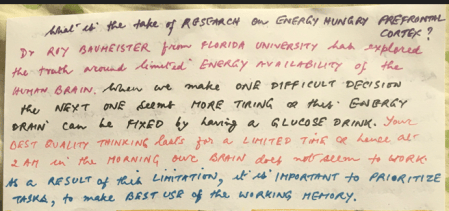 What is the take of RESEARCH on ENERGY HUNGRY PREFRONTAL
CORTEX?
Dr ROY BAUMEISTER from FLORIDA UNIVERSITY has explored
the truth around limited ENERGY AVAILABILITY of the
HUMAN BRAIN. When we make ONE DIFFICULT DECISION
the NEXT ONE seems MORE TIRING & this ENERGY
DRAIN can be FIXED by having a GLUCOSE DRINK. Your
BEST QUALITY THINKING lasts for a LIMITED TIME & hence at
2 AM in the MORNING our BRAIN does not seem to WORK.
As a RESULT of this LIMITATION, it is IMPORTANT to PRIORITIZE
TASKS, to make BEST USE of the WORKING MEMORY.